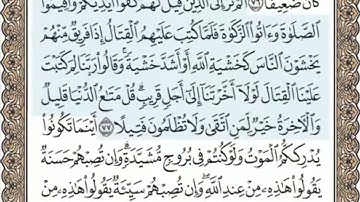 كَانَ ضَعِيفًا ٧٦ أَلَمْ تَرَ إِلَى ٱلَّذِينَ قِيلَ لَهُمْ كُفُّوٓا۟ أَيْدِيَكُمْ وَأَقِيمُوا۟
ٱلصَّلَوٰةَ وَءَاتُوا۟ ٱلزَّكَوٰةَ فَلَمَّا كُتِبَ عَلَيْهِمُ ٱلْقِتَالُ إِذَا فَرِيقٌ مِّنْهُمْ
يَخْشَوْنَ ٱلنَّاسَ كَخَشْيَةِ ٱللَّهِ أَوْ أَشَدَّ خَشْيَةً ۚ وَقَالُوا۟ رَبَّنَا لِمَ كَتَبْتَ
عَلَيْنَا ٱلْقِتَالَ لَوْلَآ أَخَّرْتَنَآ إِلَىٰٓ أَجَلٍ قَرِيبٍ ۗ قُلْ مَتَٰعُ ٱلدُّنْيَا قَلِيلٌ
وَٱلْءَاخِرَةُ خَيْرٌ لِّمَنِ ٱتَّقَىٰ وَلَا تُظْلَمُونَ فَتِيلًا ٧٧ أَيْنَمَا تَكُونُوا۟
يُدْرِككُّمُ ٱلْمَوْتُ وَلَوْ كُنتُمْ فِى بُرُوجٍ مُّشَيَّدَةٍ ۗ وَإِن تُصِبْهُمْ حَسَنَةٌ
يَقُولُوا۟ هَٰذِهِۦ مِنْ عِندِ ٱللَّهِ ۖ وَإِن تُصِبْهُمْ سَيِّئَةٌ يَقُولُوا۟ هَٰذِهِۦ مِنْ